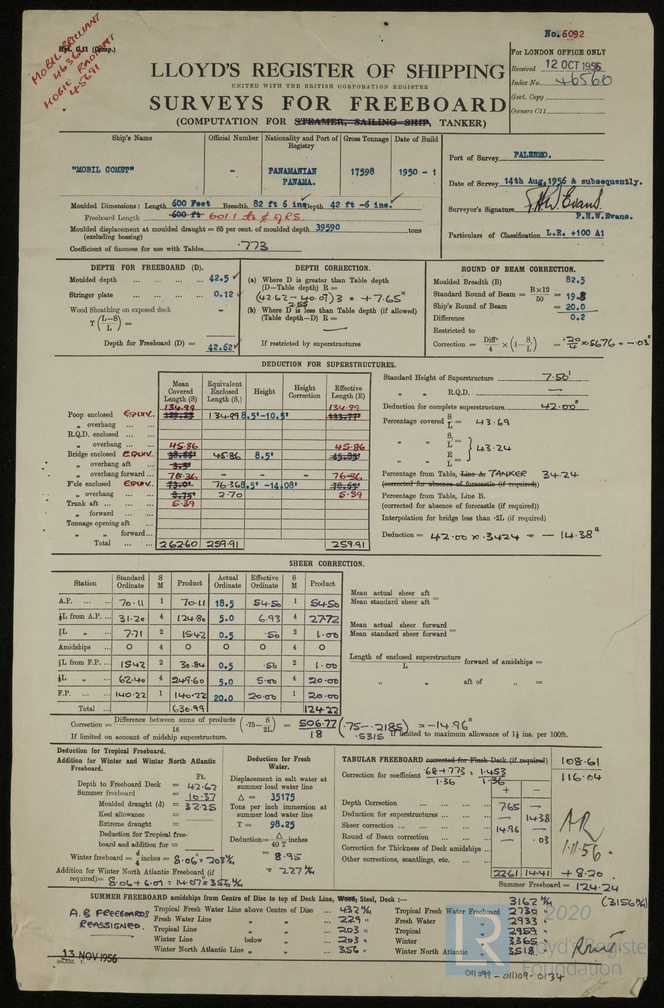 No. 6092
Rpt. C.11 (Comp.)
MOBIL BRILLIANT
4636
MOBIL RADIANT
45691
For LONDON OFFICE ONLY
Received 12 OCT 1956
Index No. 46560
Govt. Copy
Owners C11
LLOYD'S REGISTER OF SHIPPING
UNITED WITH THE BRITISH CORPORATION REGISTER
SURVEYS FOR FREEBOARD
(COMPUTATION FOR STEAMER, SAILING SHIP, TANKER)
Ship's Name Official Number Nationality and Port of Registry Gross Tonnage Date of Build
"MOBIL COMET" - PANAMANIAN PANAMA. 17598 1950 - 1
Port of Survey PALERMO.
Date of Survey 14th Aug, 1956 & subsequently.
Surveyor's Signature P.H.W. Evans
P.H.W.Evans.
Particulars of Classification L.R. +100 A1
Moulded Dimensions: Length 600 Feet Breadth 82 ft 6 ins Depth 42 ft -6 ins.
Freeboard Length 600 ft 601.1
Moulded displacement at moulded draught = 85 per cent. of moulded depth 39590 tons
(excluding bossing)
Coefficient of fineness for use with Tables .773
DEPTH FOR FREEBOARD (D).
Moulded depth 42.5
Stringer plate 0.12
Wood Sheathing on exposed deck -
T (L-S)/L =
Depth for Freeboard (D) = 42.62
DEPTH CORRECTION.
(a) Where D is greater than Table depth
(D-Table depth) R =
(42.62 - 40.07) 3 = +7.65"
2.55
(b) Where D is less than Table depth (if allowed)
(Table depth-D) R =
If restricted by superstructures
ROUND OF BEAM CORRECTION.
Moulded Breadth (B) 82.5
Standard Round of Beam = B×12/50 = 19.8
Ship's Round of Beam = 20.0
Difference 0.2
Restricted to
Correction = Diff/4 × (1 - S/L) = .20/4 × .5676 = -.03"
DEDUCTION FOR SUPERSTRUCTURES.
Mean Covered Length (S) Equivalent Enclosed Length (S₁) Height Height Correction Effective Length (E)
Poop enclosed EQUIV. 134.99 134.99 8.5'-10.5' 134.99
„ overhang
R.Q.D. enclosed
„ overhang
Bridge enclosed EQUIV. 45.86 45.86 8.5' 45.86
„ overhang aft
„ overhang forward - - -
F'cle enclosed EQUIV. 76.36 76.36 8.5' -14.08' 76.36
„ overhang 2.70 5.39
Trunk aft 5.39
„ forward
Tonnage opening aft
„ „ forward
Total 262.60 259.91 259.91
Standard Height of Superstructure 7.50'
„ „ R.Q.D. —
Deduction for complete superstructure 42.00"
Percentage covered S/L = 43.69
„ „ S₁/L =
„ „ E/L = 43.24
Percentage from Table, Line A. TANKER 34.24
(corrected for absence of forecastle (if required))
Percentage from Table, Line B.
(corrected for absence of forecastle (if required))
Interpolation for bridge less than .2L (if required)
Deduction = 42.00 × .3424 = - 14.38"
SHEER CORRECTION.
Station Standard Ordinate S M Product Actual Ordinate Effective Ordinate S M Product
A.P. 70.11 1 70.11 18.5 54.50 1 54.50
⅙L from A.P. 31.20 4 124.80 5.0 6.93 4 27.72
⅓L „ 7.71 2 15.42 0.5 .50 2 1.00
Amidships 0 4 0 0 0 4 0
⅓L from F.P. 15.42 2 30.84 0.5 .50 2 1.00
⅙L „ 62.40 4 249.60 5.0 5.00 4 20.00
F.P. 140.22 1 140.22 20.0 20.00 1 20.00
Total 630.99 124.22
Mean actual sheer aft
Mean standard sheer aft =
Mean actual sheer forward
Mean standard sheer forward =
Length of enclosed superstructure forward of amidships =
L
„ „ aft of „ =
Correction = Difference between sums of products/18 (.75 - S/2L) = 506.77/18 (.75-.2185) = -14.96"
.5315
If limited on account of midship superstructure. If limited to maximum allowance of 1½ ins. per 100ft.
Deduction for Tropical Freeboard.
Addition for Winter and Winter North Atlantic Freeboard.
Ft.
Depth to Freeboard Deck = 42.62
Summer freeboard = 10.37
Moulded draught (d) = 32.25
Keel allowance =
Extreme draught =
Deduction for Tropical freeboard and addition for =
Winter freeboard = d/4 inches = 8.06 = 203 m/m
Addition for Winter North Atlantic Freeboard (if required) = 8.06 + 6.01 = 14.07 = 356 m/m
Deduction for Fresh Water.
Displacement in salt water at summer load water line
Δ = 35175
Tons per inch immersion at summer load water line
T = 98.25
Deduction = Δ/40 T inches
= 8.95
= 227 m/m
TABULAR FREEBOARD corrected for Flush Deck (if required) 108.61
Correction for coefficient .68+.773/1.36 = 1.453/1.36 116.04
+ -
Depth Correction 7.65 —
Deduction for superstructures — 14.38
Sheer correction 14.96 —
Round of Beam correction — .03
Correction for Thickness of Deck amidships
Other corrections, scantlings, etc.
22.61 14.41 + 8.20
Summer Freeboard = 124.24
AR
1.11.56.
SUMMER FREEBOARD amidships from Centre of Disc to top of Deck Line, Wood, Steel, Deck :— 3162 m/m (3156 m/m)
A.B FREEBOARDS REASSIGNED.
Tropical Fresh Water Line above Centre of Disc 432 m/m Tropical Fresh Water Freeboard 2730
Fresh Water Line „ „ 229 „ Fresh Water „ 2933
Tropical Line „ „ 203 „ Tropical „ 2959
Winter Line below „ 203 „ Winter „ 3365
Winter North Atlantic Line „ „ 356 „ Winter North Atlantic „ 3518
13 NOV 1956
LR © 2020
Lloyd's Register
Foundation
011099 - 011109 - 0134